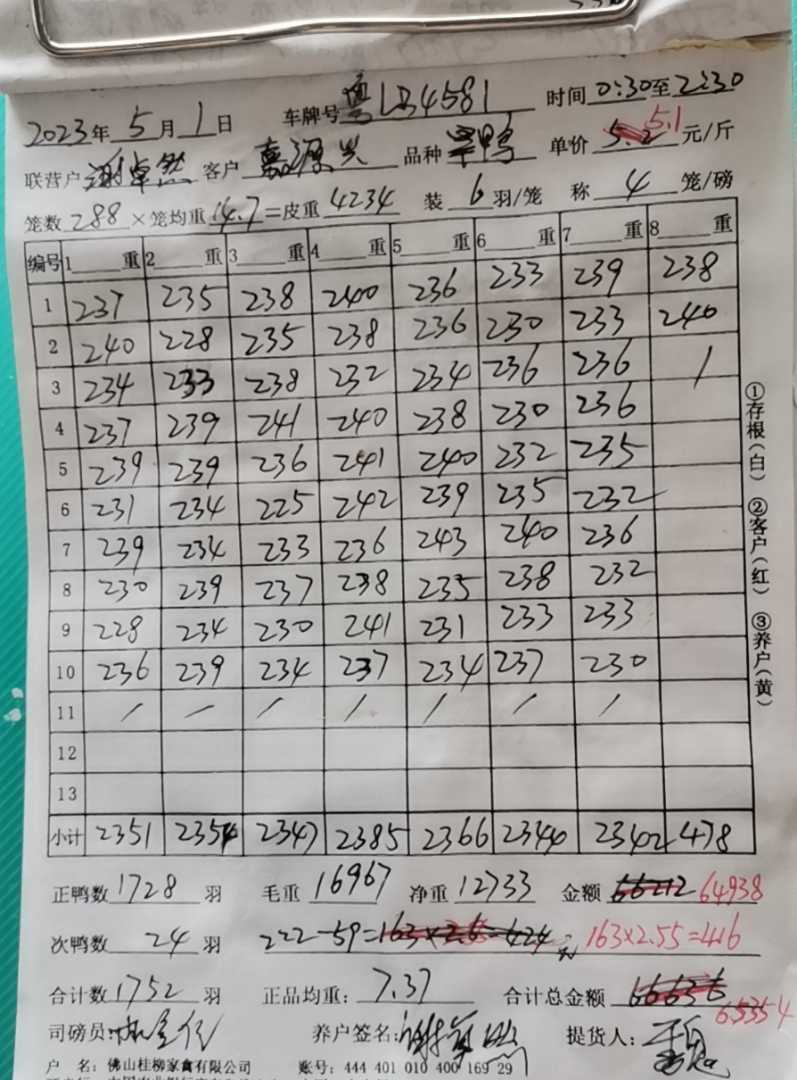 2023年5月1日 车牌号粤L34581 时间0:30至2:30
联营户谢卓然 客户嘉源兴 品种旱鸭 单价5.2 5.1元/斤
笼数288×笼均重14.7=皮重4234 装6羽/笼 称4笼/磅
编号 1重 2重 3重 4重 5重 6重 7重 8重
1 237 235 238 240 236 233 239 238
2 240 228 235 238 236 230 233 240
3 234 233 238 232 234 236 236 /
4 237 239 241 240 238 230 236
5 239 239 236 241 240 232 235
6 231 234 225 242 239 235 232
7 239 234 233 236 243 240 236
8 230 239 237 238 235 238 232
9 228 234 230 241 231 233 233
10 236 239 234 237 234 237 230
11 / / / / / / /
12
13
小计 2351 2354 2347 2385 2366 2344 2342 478
①存根(白) ②客户(红) ③养户(黄)
正鸭数1728羽 毛重16967 净重12733 金额66212 64938
次鸭数24羽 222-59=163×2.6=424 163×2.55=416
合计数1752羽 正品均重:7.37 合计总金额66636 65354
司磅员: 养户签名: 提货人:
户 名:佛山桂柳家禽有限公司 账号:444 401 010 400 169 29